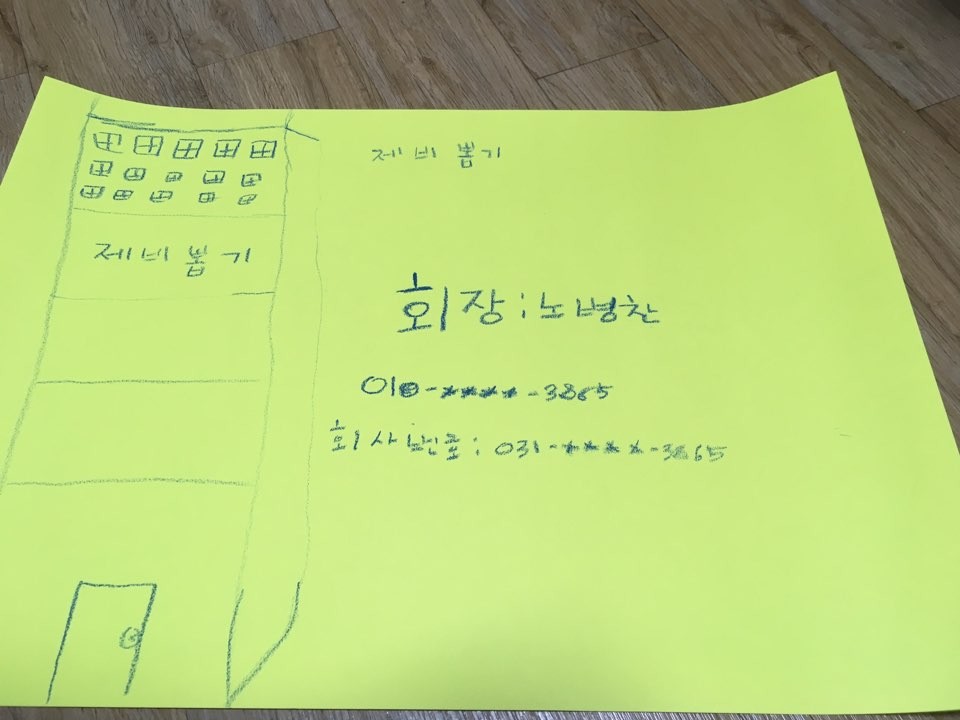 제비뽑기
제비뽑기
회장:노병찬
010-****-3865
회사번호:031-****-3865